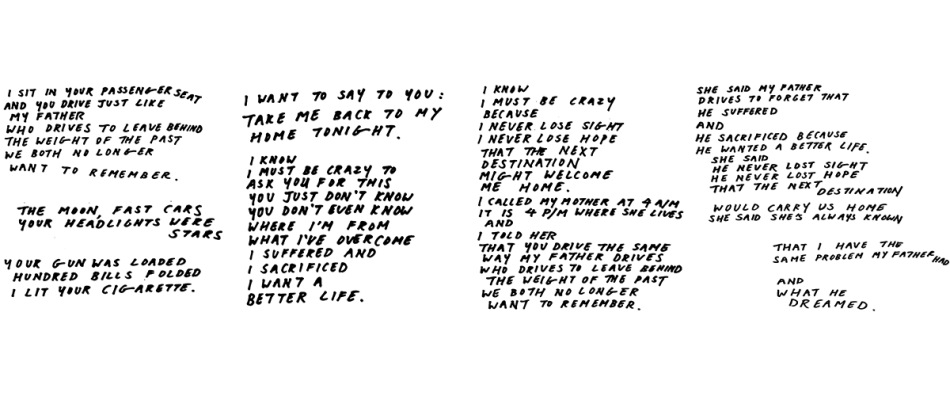 I SIT IN YOUR PASSENGER SEAT
AND YOU DRIVE JUST LIKE
MY FATHER
WHO DRIVES TO LEAVE BEHIND
THE WEIGHT OF THE PAST
WE BOTH NO LONGER
WANT TO REMEMBER.
THE MOON, FAST CARS
YOUR HEADLIGHTS WERE
STARS
YOUR GUN WAS LOADED
HUNDRED BILLS FOLDED
I LIT YOUR CIGARETTE.
I WANT TO SAY TO YOU:
TAKE ME BACK TO MY
HOME TONIGHT.
I KNOW
I MUST BE CRAZY TO
ASK YOU FOR THIS
YOU JUST DON'T KNOW
YOU DON'T EVEN KNOW
WHERE I'M FROM
WHAT I'VE OVERCOME
I SUFFERED AND
I SACRIFICED
I WANT A
BETTER LIFE.
I KNOW
I MUST BE CRAZY
BECAUSE
I NEVER LOSE SIGHT
I NEVER LOSE HOPE
THAT THE NEXT
DESTINATION
MIGHT WELCOME
ME HOME.
I CALLED MY MOTHER AT 4 A/M
IT IS 4 P/M WHERE SHE LIVES
AND
I TOLD HER
THAT YOU DRIVE THE SAME
WAY MY FATHER DRIVES
WHO DRIVES TO LEAVE BEHIND
THE WEIGHT OF THE PAST
WE BOTH NO LONGER
WANT TO REMEMBER.
SHE SAID MY FATHER
DRIVES TO FORGET THAT
HE SUFFERED
AND
HE SACRIFICED BECAUSE
HE WANTED A BETTER LIFE.
SHE SAID
HE NEVER LOST SIGHT
HE NEVER LOST HOPE
THAT THE NEXT DESTINATION
WOULD CARRY US HOME
SHE SAID SHE'S ALWAYS KNOWN
THAT I HAVE THE
SAME PROBLEM MY FATHER HAD
AND
WHAT HE
DREAMED.